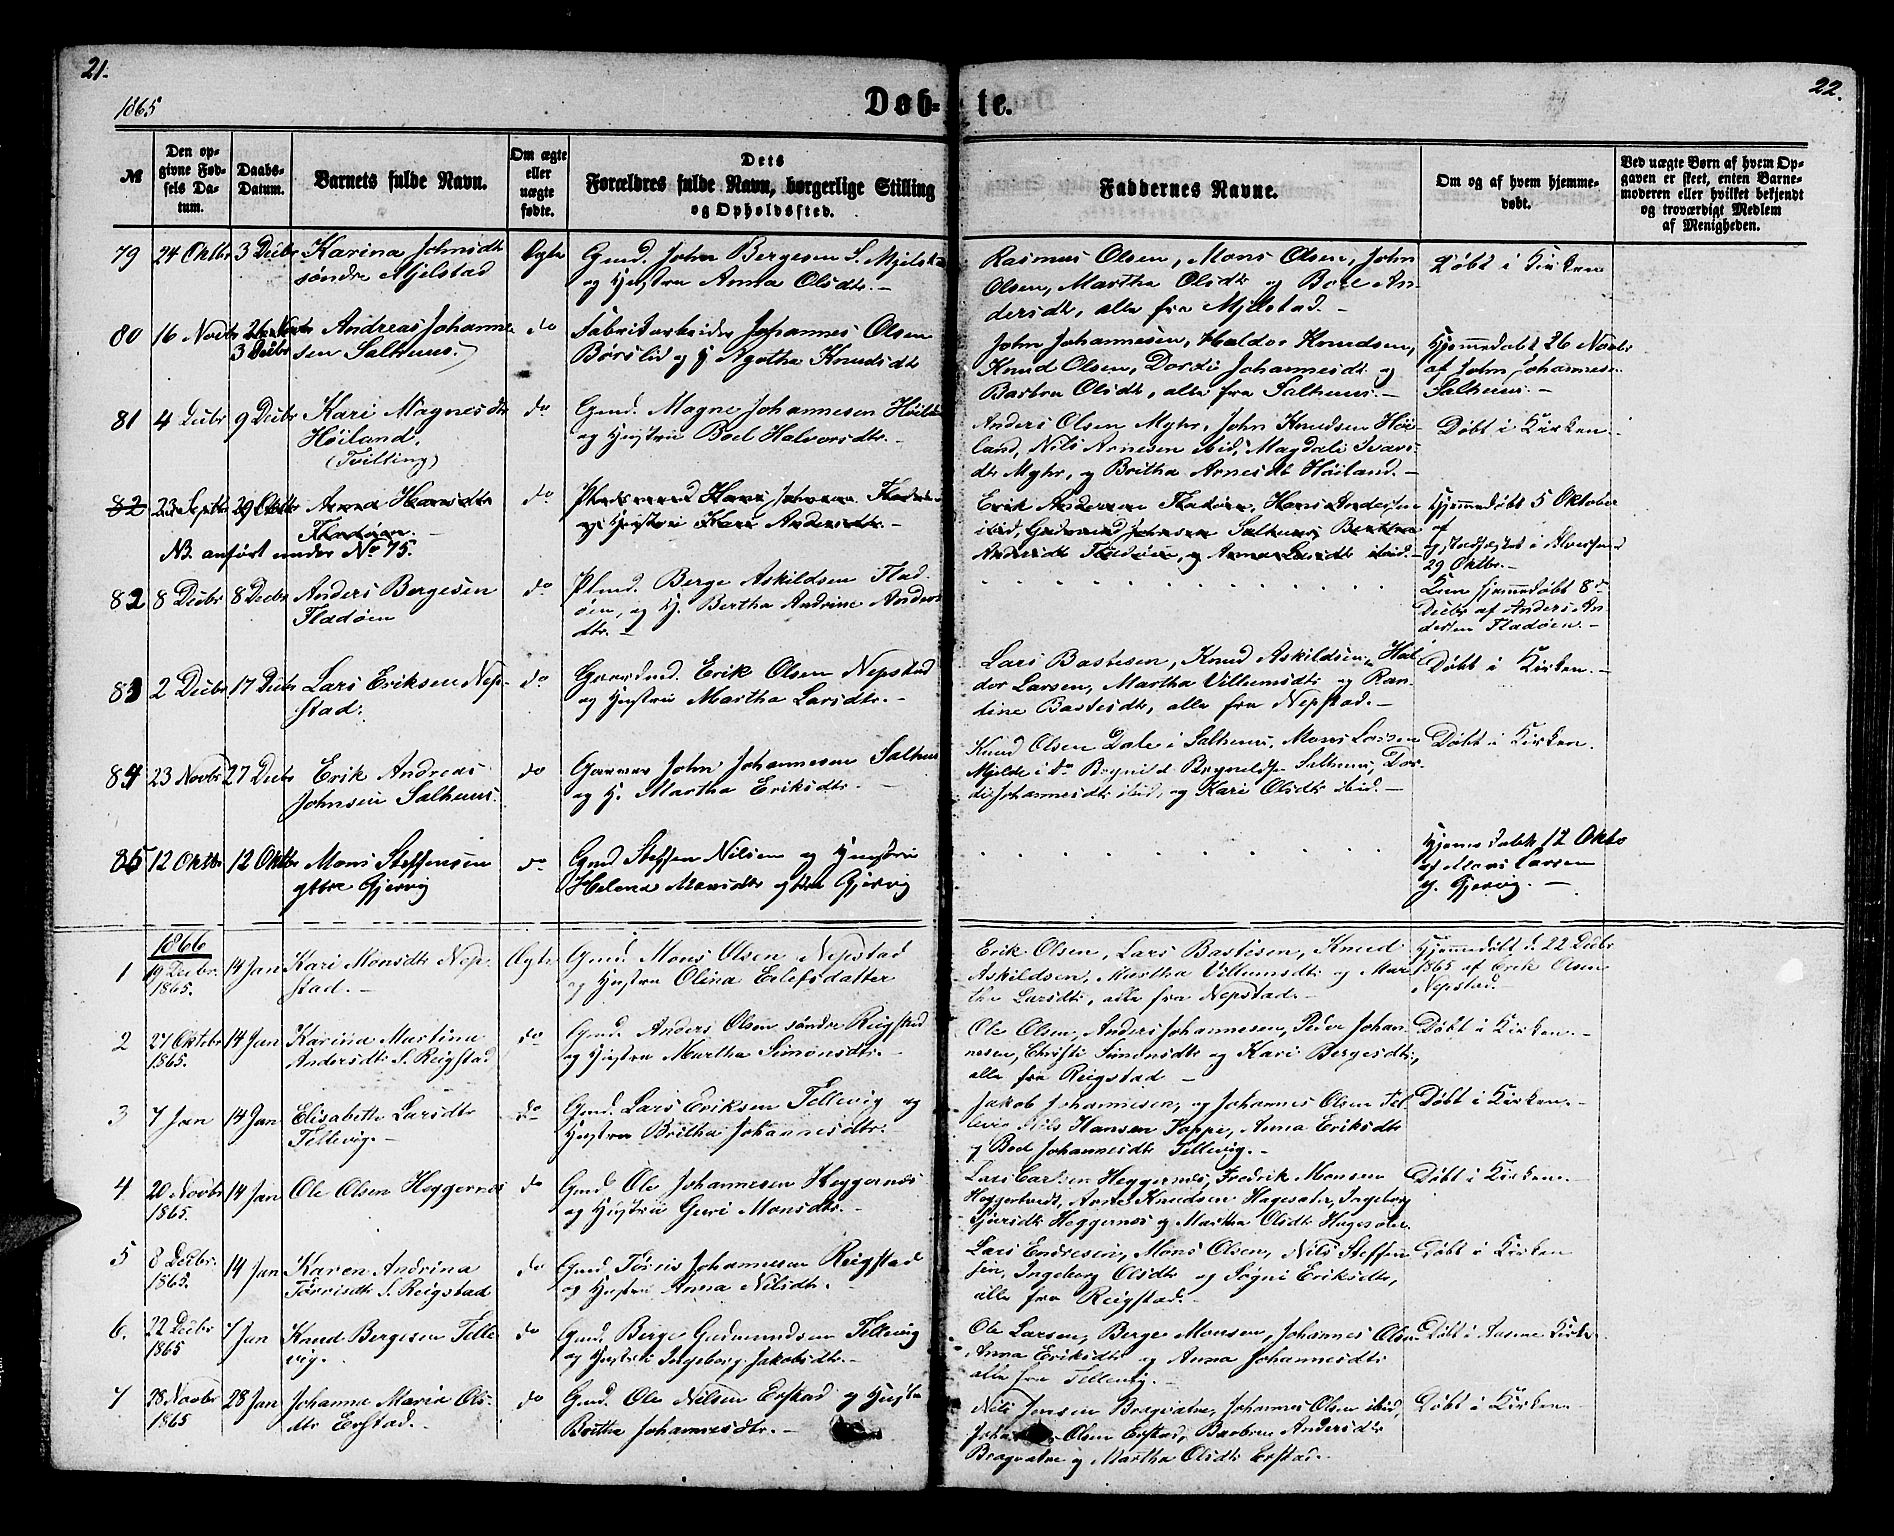 21.
22.
1865
Døb-te.
№
Den opgivne Fødsels Datum.
Daabs-Datum.
Barnets fulde Navn.
Om ægte eller uægte fødte.
Dets Forældres fulde Navn, borgerlige Stilling og Opholdssted.
Faddernes Navne.
Om og af hvem hjemmedøbt.
Ved uægte Børn af hvem Opgaven er skeet, enten Barnemoderen eller hvilket bekjendt og troværdigt Medlem af Menigheden.
79 24 Oktbr 3 Decbr Karina Johnsdtr Ægte Gmd. John Bergesen S. Mjelstad Rasmus Olsen, Mons Olsen, John Døbt i Kirken
søndre Mjelstad og Hustru Anna Olsdtr. Olsen, Martha Olsdtr og Boel An-
dersdtr, alle fra Mjelstad.
80 16 Novbr 26 Novbr Andreas Johanne- do Fabrikarbeider Johannes Olsen John Johannesen, Haldor Knudsen, Hjemmedøbt 26 Novbr
3 Decbr sen Salhuus. Børslid og H. Agatha Knudsdtr Knud Olsen, Dorthi Johannesdtr og af John Johannesen
Barbra Olsdtr, alle fra Salhuus. Salhuus.
81 4 Decbr 9 Decbr Kari Magnesdtr do Gmd. Magne Johannesen Höiland Anders Olsen Myhr, John Knudsen Höi- Døbt i Kirken.
Höiland. og Hustru Boel Halvorsdtr. land, Nils Arnesen ibid, Magdali Ivars-
(Tvilling) dtr Myhr, og Britha Arnesdtr Höiland.
82 23 Septbr 29 Oktbr Anna Hansdtr do Pladsmand Hans Johnsen Fladøen Erik Andersen Fladøen, Hans Andersen Hjemmedøbt 5 Oktober
Fladøen. og Hustru Kari Andersdtr. ibid, Gudmund Johnsen Salhuus, Berthe af
NB. anført under No 75. Andersdtr Fladøen, og Anna Larsdtr ibid. og stadfæstet i Alversund
29 Oktbr.
82 8 Decbr 8 Decbr Anders Bergesen do Plmd. Berge Askildsen Flad- Kun hjemmedøbt 8de
Fladøen øen, og H. Bertha Andrine Anders Decbr af Anders An-
dtr. dersen Fladøen.
83 2 Decbr 17 Decbr Lars Eriksen Nep- do Gaardmd. Erik Olsen Nepstad Lars Bastesen, Knud Askildsen, Hal- Døbt i Kirken.
stad. og Hustru Martha Larsdtr. dor Larsen, Martha Villumsdtr og Ran-
tine Bastesdtr, alle fra Nepstad.
84 23 Novbr 27 Decbr Erik Andreas do Garver John Johannesen Salhuus Knud Olsen Dale i Salhuus, Mons Larsen Døbt i Kirken.
Johnsen Salhuus. og H. Martha Eriksdtr. Mjelde i do Brynild Brynilds. Salhuus, Dor-
di Johannesdtr ibid, og Kari Olsdtr ibid.
85 12 Oktbr 12 Oktbr Mons Steffensen do Gmd Steffen Nilsen og Hustru Hjemmedøbt 12 Oktb
yttre Gjervig Helena Monsdtr yttre Gjervig af Mons Larsen
y. Gjervig.
1866
1 19 Decbr 14 Jan Kari Monsdtr Nep- Ægte Gmd. Mons Olsen Nepstad Erik Olsen, Lars Bastesen, Knud Hjemmedøbt d. 22 Decbr
1865. stad. og Hustru Olina Erlefsdatter Askildsen, Martha Villumsdtr og Mar- 1865 af Erik Olsen
tha Larsdtr, alle fra Nepstad. Nepstad.
2 27 Oktbr 14 Jan Karina Martina do Gmd. Anders Olsen søndre Reigstad Ole Olsen, Anders Johannesen, Peder Johan- Døbt i Kirken.
1865. Andersdtr S. Reigstad og Hustru Martha Simonsdtr. nesen, Christi Simonsdtr og Kari Bergesdtr,
alle fra Reigstad
3 7 Jan 14 Jan Elisabetha Larsdtr do Gmd. Lars Eriksen Tellevig og Jakob Johannesen, og Johannes Olsen Tel- Døbt i Kirken.
Tellevig. Hustru Britha Johannesdtr. levig Nils Hansen Toppe, Anna Eriksdtr
og Boel Johannesdtr Tellevig.
4 20 Novbr 14 Jan Ole Olsen Heggernes do Gmd Ole Johannesen Heggernes Lars Larsen Heggernes, Fredrik Monsen Døbt i Kirken.
1865. og Hustru Guri Monsdtr. Heggertvedt, Arne Knudsen Hagesæter, Ingeborg
Heggernes og Martha Olsdtr Hagesæter.
5 8 Decbr. 14 Jan Karen Andrina do Gmd Torris Johannesen Reigstad Lars Endresen, Mons Olsen, Nils Steffen- Døbt i Kirken
1865. Torrisdtr S. Reigstad og Hustru Anna Nilsdtr. sen, Ingeborg Olsdtr og Sogni Eriksdtr,
alle fra Reigstad.
6. 22 Decbr 7 Jan Knud Bergesen Telle- do Gmd. Berge Gudmundsen Tellevig Ole Larsen, Berge Monsen, Johannes Olsen Døbt i Aasene Kirke
1865 vig. og Hustru Ingeborg Jakobsdtr. Anna Eriksdtr og Anna Johannesdtr
alle fra Tellevig.
7 28 Novbr 28 Jan Johanna Maria Ols- do Gmd. Ole Nilsen Erstad og Hustru Nils Jensen Bragvatne, Johannes Olsen ibid, Døbt i Kirken.
1865 dtr Erstad. Britha Johannesdtr. Olsen Erstad, Barbra Andersdtr
Bragvatne og Martha Olsdtr Erstad.